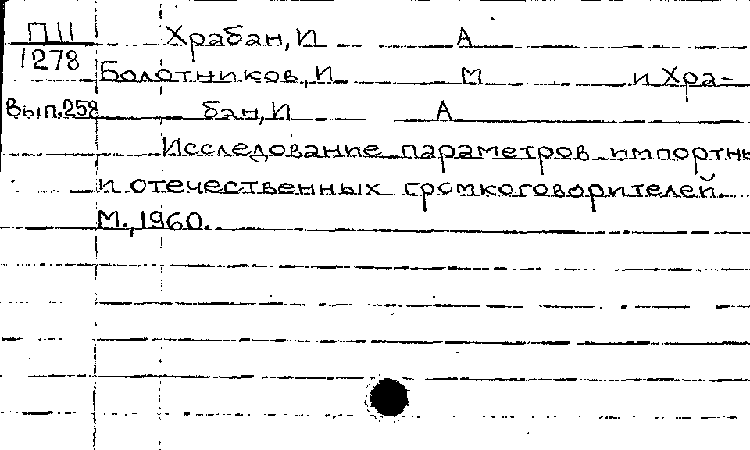 П11 Храбан, И А
1278 Болотников, И М и Хра-
Вып.258 бан, И А
Исследование параметров импортны
и отечественных громкоговорителей.
М., 1960.